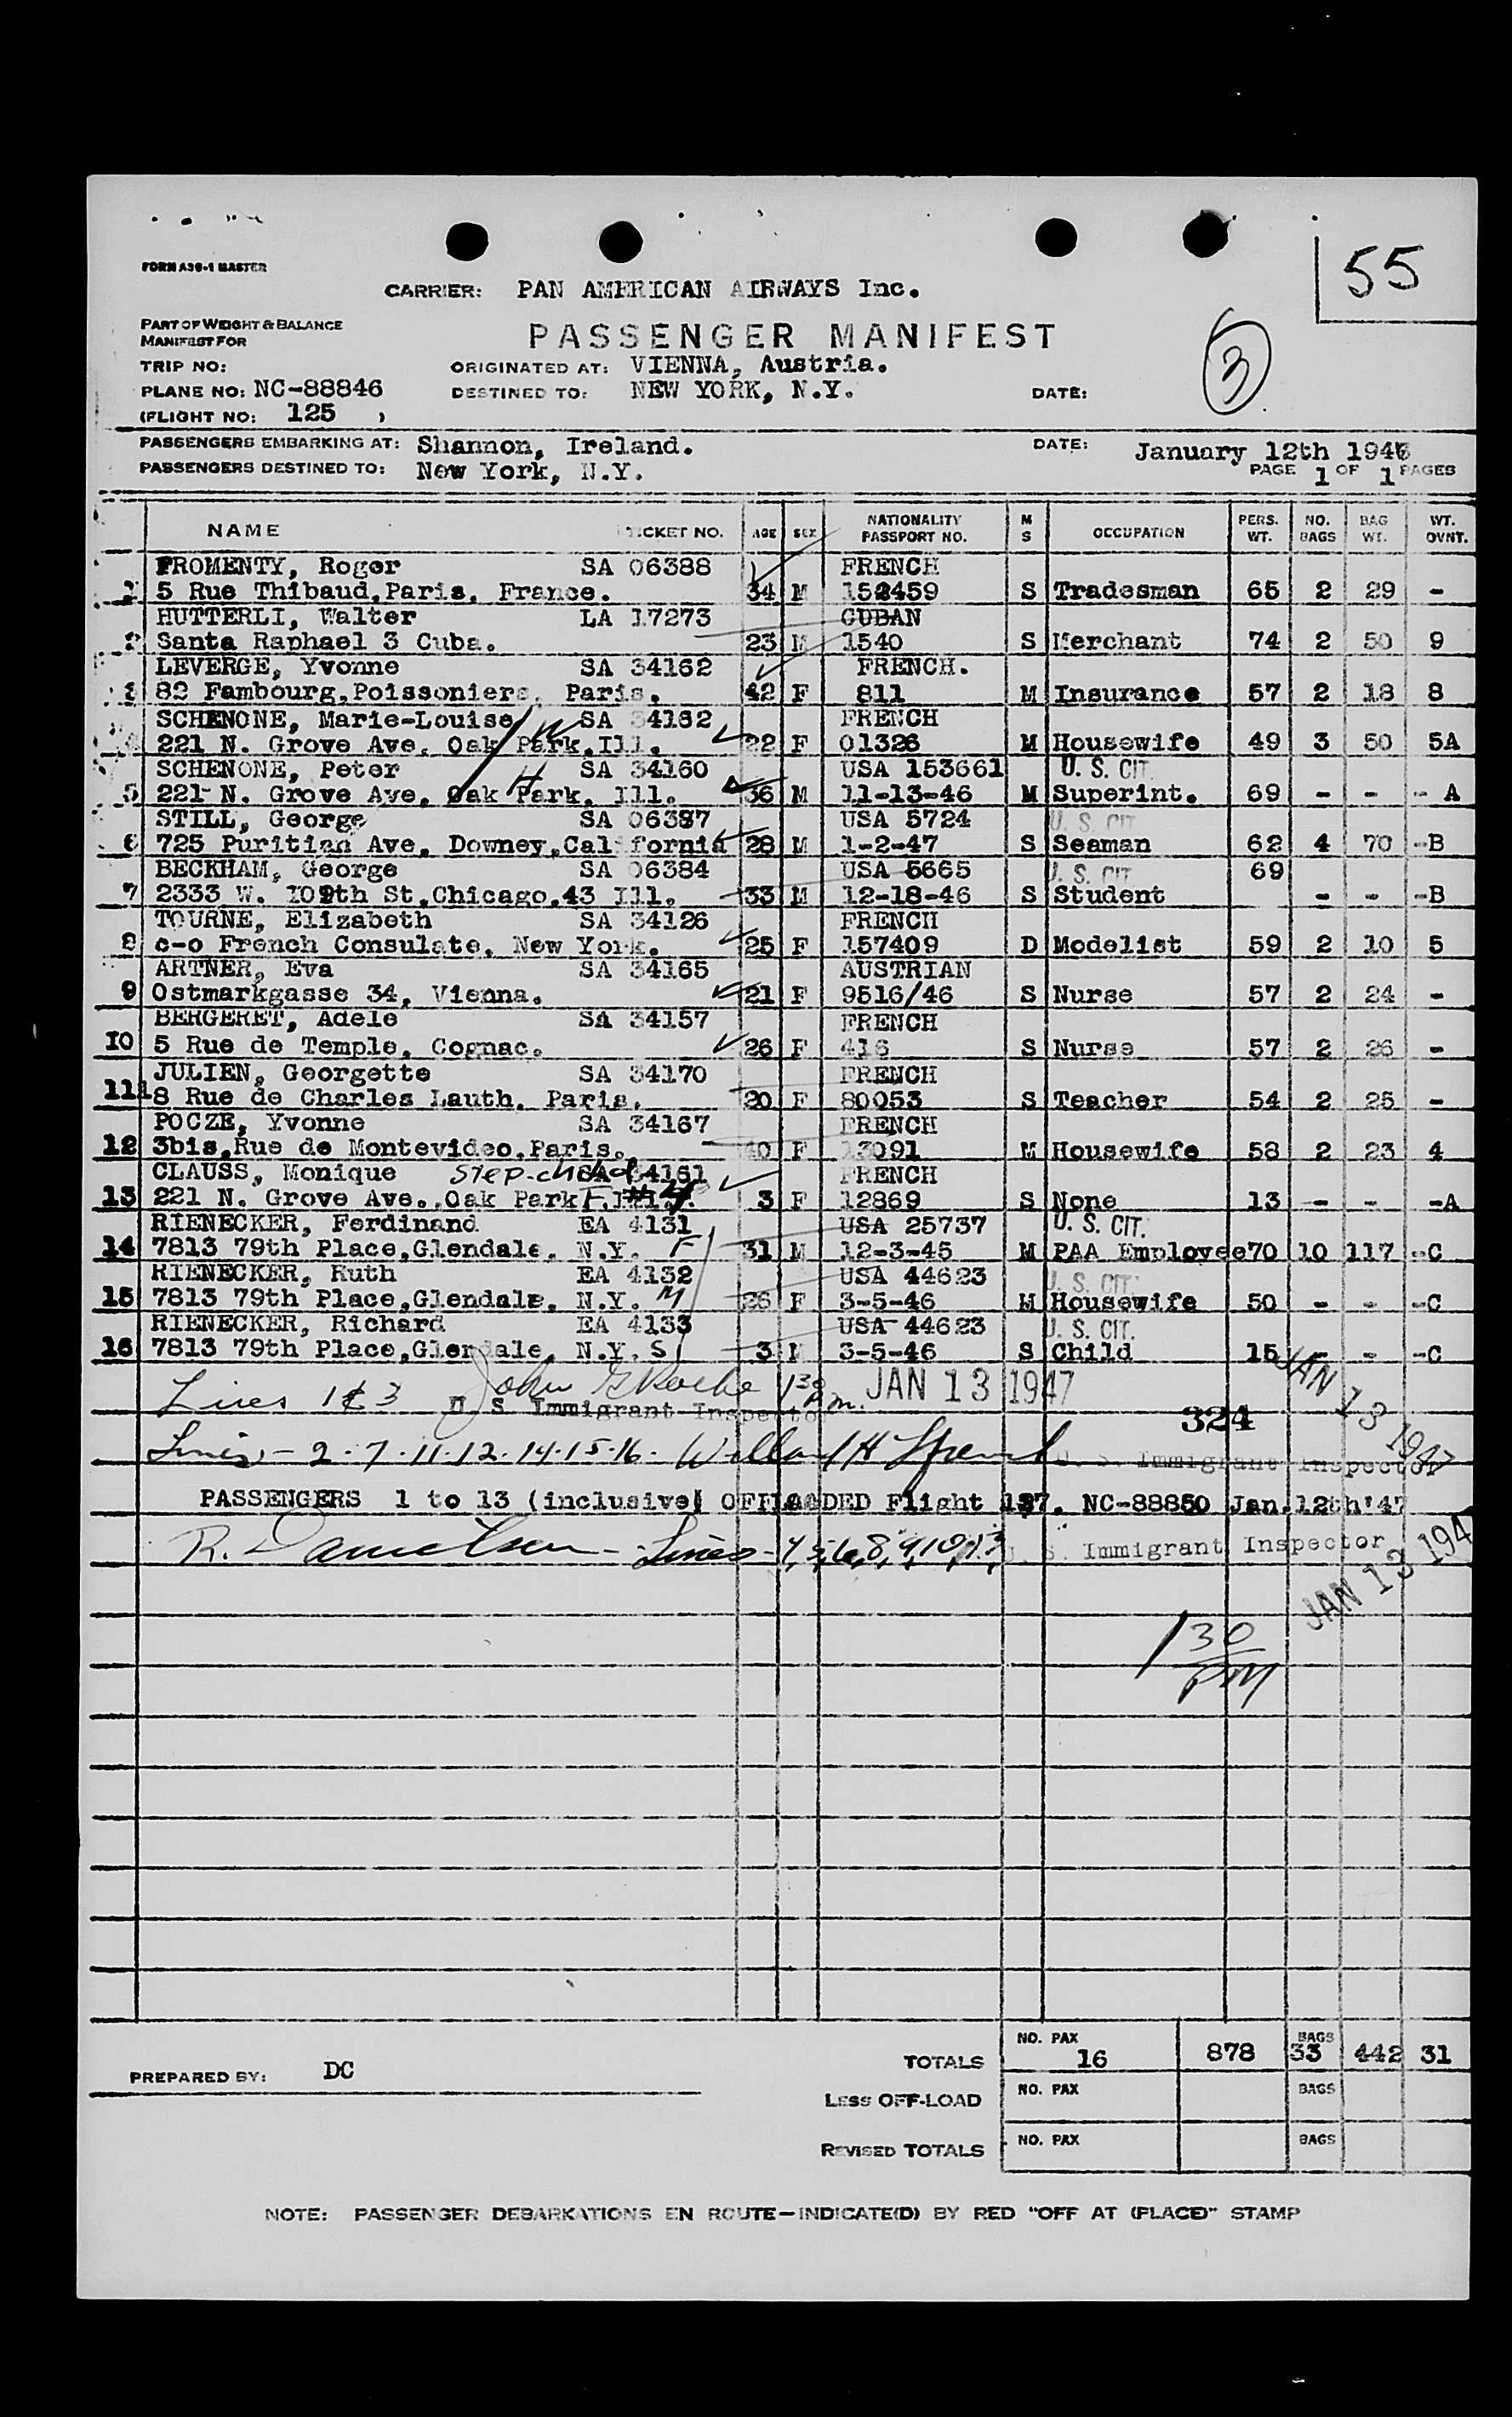 55
FORM A30-1 MASTER
CARRIER: PAN AMERICAN AIRWAYS Inc.
PART OF WEIGHT & BALANCE
MANIFEST FOR
PASSENGER MANIFEST
3
TRIP NO:
ORIGINATED AT: VIENNA, Austria.
PLANE NO: NC-88846
DESTINED TO: NEW YORK, N.Y.
DATE:
(FLIGHT NO: 125 )
PASSENGERS EMBARKING AT: Shannon, Ireland.
DATE: January 12th 194
PASSENGERS DESTINED TO: New York, N.Y.
PAGE 1 OF 1 PAGES
NAME TICKET NO. AGE SEX NATIONALITY PASSPORT NO. M S OCCUPATION PERS. WT. NO. BAGS BAG WT. WT. OVNT.
FROMENTY, Roger SA 06388 FRENCH
5 Rue Thibaud,Paris, France. 34 M 152459 S Tradesman 65 2 29 -
HUTTERLI, Walter LA 17273 CUBAN
2 Santa Raphael 3 Cuba. 23 M 1540 S Merchant 74 2 50 9
LEVERGE, Yvonne SA 34162 FRENCH.
82 Fambourg,Poissoniers, Paris. 42 F 811 M Insurance 57 2 18 8
SCHENONE, Marie-Louise SA 34162 FRENCH
221 N. Grove Ave, Oak Park,Ill. 22 F 01326 M Housewife 49 3 50 5A
SCHENONE, Peter H SA 34160 USA 153661 U. S. CIT.
5 221 N. Grove Ave, Oak Park, Ill. 36 M 11-13-46 M Superint. 69 - - - A
STILL, George SA 06387 USA 5724 U. S. CIT
6 725 Puritian Ave, Downey,California 28 M 1-2-47 S Seaman 62 4 70 -B
BECKHAM, George SA 06384 USA 5665 U. S. CIT 69
7 2333 W. 109th St,Chicago,43 Ill. 33 M 12-18-46 S Student - - -B
TOURNE, Elizabeth SA 34126 FRENCH
8 c-o French Consulate, New York. 25 F 157409 D Modelist 59 2 10 5
ARTNER, Eva SA 34165 AUSTRIAN
9 Ostmarkgasse 34, Vienna. 21 F 9516/46 S Nurse 57 2 24 -
BERGERET, Adele SA 34157 FRENCH
10 5 Rue de Temple, Cognac. 26 F 416 S Nurse 57 2 26 -
JULIEN, Georgette SA 34170 FRENCH
11 18 Rue de Charles Lauth, Paris. 20 F 80053 S Teacher 54 2 25 -
POCZE, Yvonne SA 34167 FRENCH
12 3bis,Rue de Montevideo,Paris. 40 F 13091 M Housewife 58 2 23 4
CLAUSS, Monique Step-child SA 34161 FRENCH
13 221 N. Grove Ave.,Oak Park 3 F 12869 S None 13 - - -A
RIENECKER, Ferdinand EA 4131 USA 25737 U. S. CIT.
14 7813 79th Place,Glendale, N.Y. F 31 M 12-3-45 M PAA Employee 70 10 117 -C
RIENECKER, Ruth EA 4132 USA 44623 U. S. CIT.
15 7813 79th Place,Glendale, N.Y. M 26 F 3-5-46 M Housewife 50 - - -C
RIENECKER, Richard EA 4133 USA 44623 U. S. CIT.
16 7813 79th Place,Glendale, N.Y. S 3 M 3-5-46 S Child 15 - - -C
Lines 1 & 3 John G Roche 1 30 p.m. JAN 13 1947
U. S. Immigrant Inspector
324 JAN 13 1947
Lines - 2 - 7 - 11 - 12 - 14 - 15 - 16 -
U. S. Immigrant Inspector
PASSENGERS 1 to 13 (inclusive) OFFLOADED Flight 127, NC-88850 Jan.12th'47
R. Danielsen - Lines - 4, 5, 6, 8, 9, 10, 13, U. S. Immigrant Inspector
JAN 13 194
1 30 PM
TOTALS NO. PAX 16 878 BAGS 33 442 31
PREPARED BY: DC
LESS OFF-LOAD NO. PAX BAGS
REVISED TOTALS NO. PAX BAGS
NOTE: PASSENGER DEBARKATIONS EN ROUTE—INDICATE(D) BY RED "OFF AT (PLACE)" STAMP